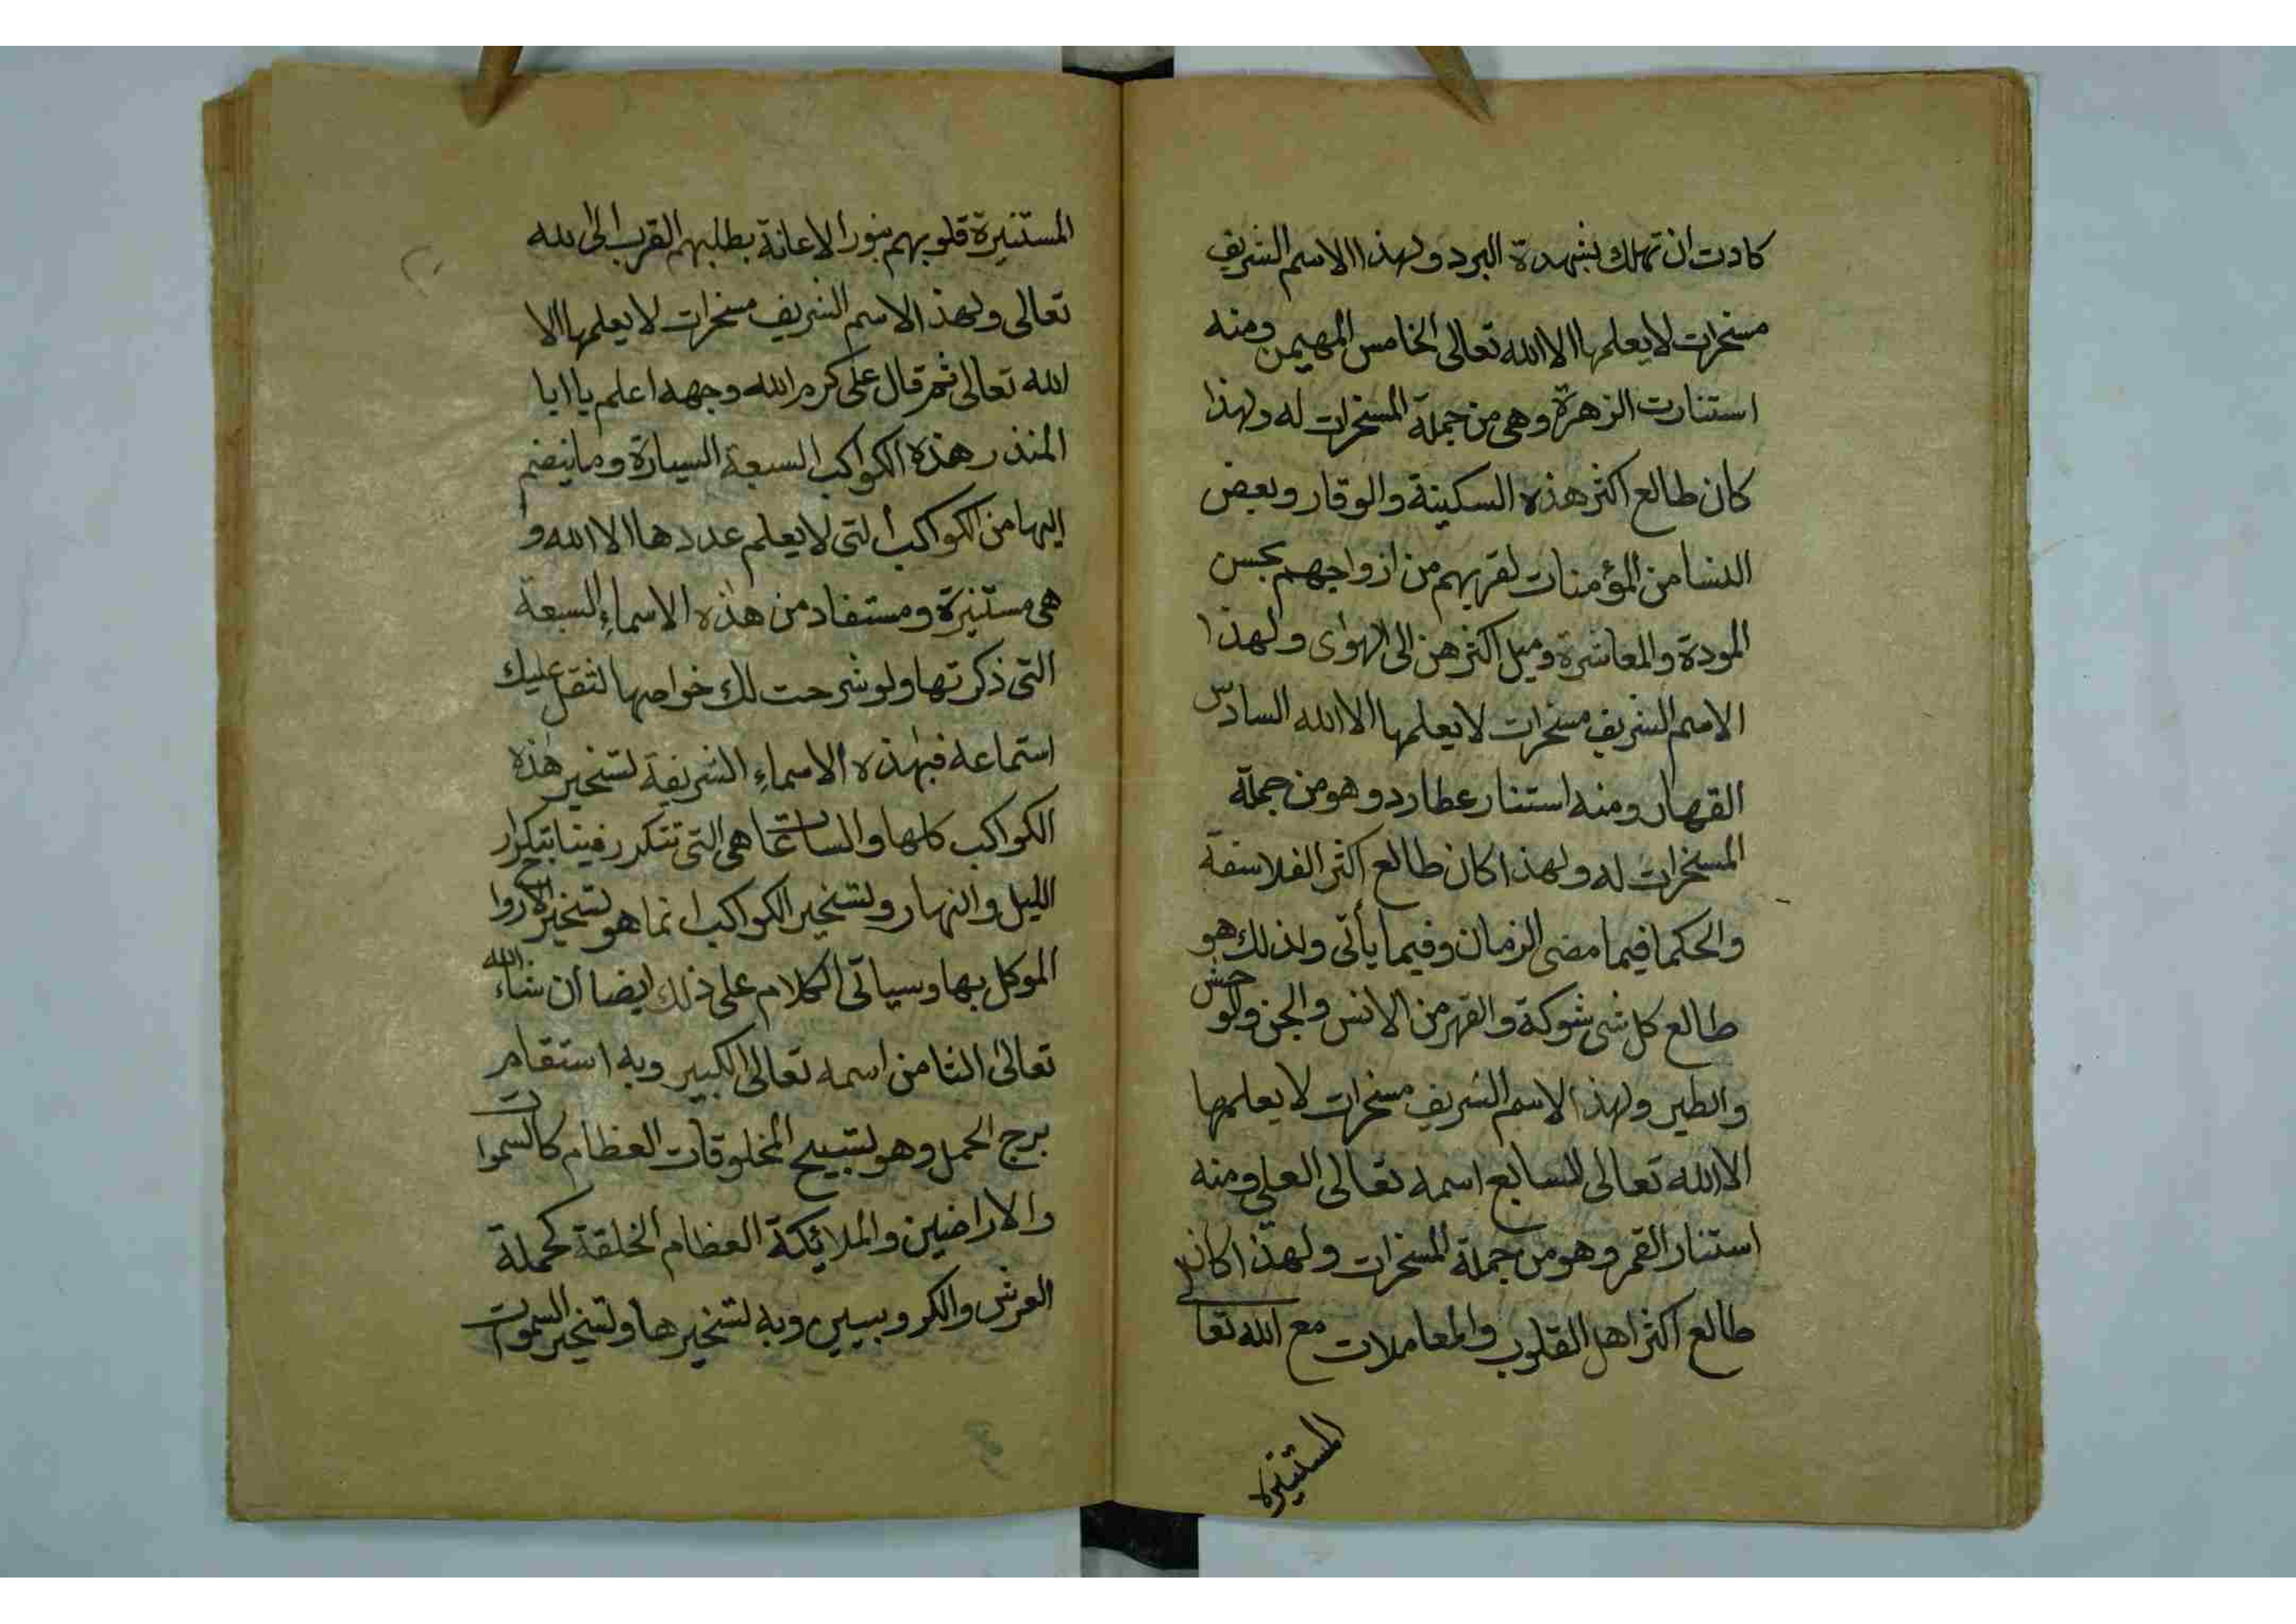 كادت ان تهلك بشهدة البرد ولهذا الاسم الشريف
مسخرات لا يعلمها الا الله تعالى الخامس المهيمن ومنه
استنارت الزهرة وهي من جملة المسخرات له ولهذا
كان طالع اكثر هذه السكينة والوقار وبعض
النسا من المؤمنات لقربهم من ازواجهم بحسن
المودة والمعاشرة وميل اكثرهن الى الهوى ولهذا
الاسم الشريف مسخرات لا يعلمها الا الله السادس
القهار ومنه استنار عطارد وهو من جملة
المسخرات له ولهذا كان طالع اكثر الفلاسفة
والحكما فيما مضى الزمان وفيما يأتى ولذلك هو
طالع كل شى شوكة والقهر من الانس والجن والوحش
والطير ولهذا الاسم الشريف مسخرات لا يعلمها
الا الله تعالى السابع اسمه تعالى العلي ومنه
استنار القمر وهو من جملة المسخرات ولهذا كان
طالع اكثر اهل القلوب والمعاملات مع الله تعالى
المستنيرة
المستنيرة قلوبهم بنور الاعانة بطلبهم القرب الى الله
تعالى ولهذ الاسم الشريف مسخرات لا يعلمها الا
الله تعالى ثم قال على كرم الله وجهه اعلم يا ابا
المنذر هذه الكواكب السبعة السيارة وما ينضم
اليها من الكواكب التى لا يعلم عددها الا الله و
هى مستنيرة ومستفاد من هذه الاسماء السبعة
التى ذكرتها ولو شرحت لك خواصها لثقل عليك
استماعه فبهذه الاسماء الشريفة تسخير هذه
الكواكب كلها والساعات هى التى تتكرر فينا بتكرار
الليل والنهار وتسخير الكواكب انما هو تسخير الارواح
الموكل بها وسياتى الكلام على ذلك ايضا ان شاء الله
تعالى الثامن اسمه تعالى الكبير وبه استقام
برج الحمل وهو تسبيح المخلوقات العظام كالسموات
والاراضين والملائكة العظام الخلقة كحملة
العرش والكروبيين وبه تسخيرها وتسخير السموات